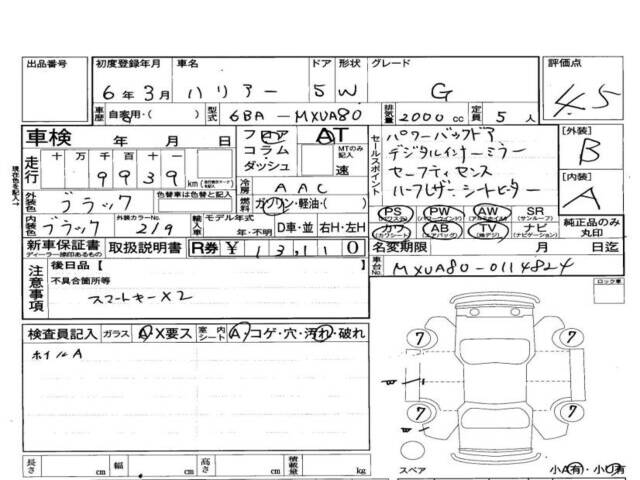 出品番号
初度登録年月 車名 ドア 形状 グレード 評価点
6年3月 ハリアー 5 W G 4.5
車歴 自家用・( ) 型式 6BA-MXUA80 排気量 2000 cc 定員 5 人
車検 年 月 日
フロア AT
コラム MTのみ記入
ダッシュ 速
走行 十 万 千 百 十 一
9939 km
冷房 AAC
燃料 ガソリン・軽油・( )
外装色 ブラック 色替車は色替と記入
内装色 ブラック 外装カラーNo. 219
輸入車 モデル年式 年・不明 D車・並 右H・左H
セールスポイント
パワーバックドア
デジタルインナーミラー
セーフティセンス
ハーフレザーシートヒーター
[外装] B
[内装] A
PS PW AW SR
(パワステ) (パワーウィンド) (アルミホイル) (サンルーフ)
カワ AB TV ナビ
(カワシート) (エアバッグ) (地デジ) (ナビゲーション)
純正品のみ丸印
新車保証書 取扱説明書 R券 ¥13,110
ディーラー捺印あるもの
名変期限 月 日迄
車台No. MXUA80-0114824
注意事項
後日品【
不具合箇所等
スマートキーX2
ロック車
検査員記入 ガラス A・X要ス 室内シート A・コゲ・穴・汚れ・破れ
ホイルA
7 7
7 7
長さ cm 幅 cm 高さ cm 積載量 kg
スペア 小A有・小U有
現在色を記入→